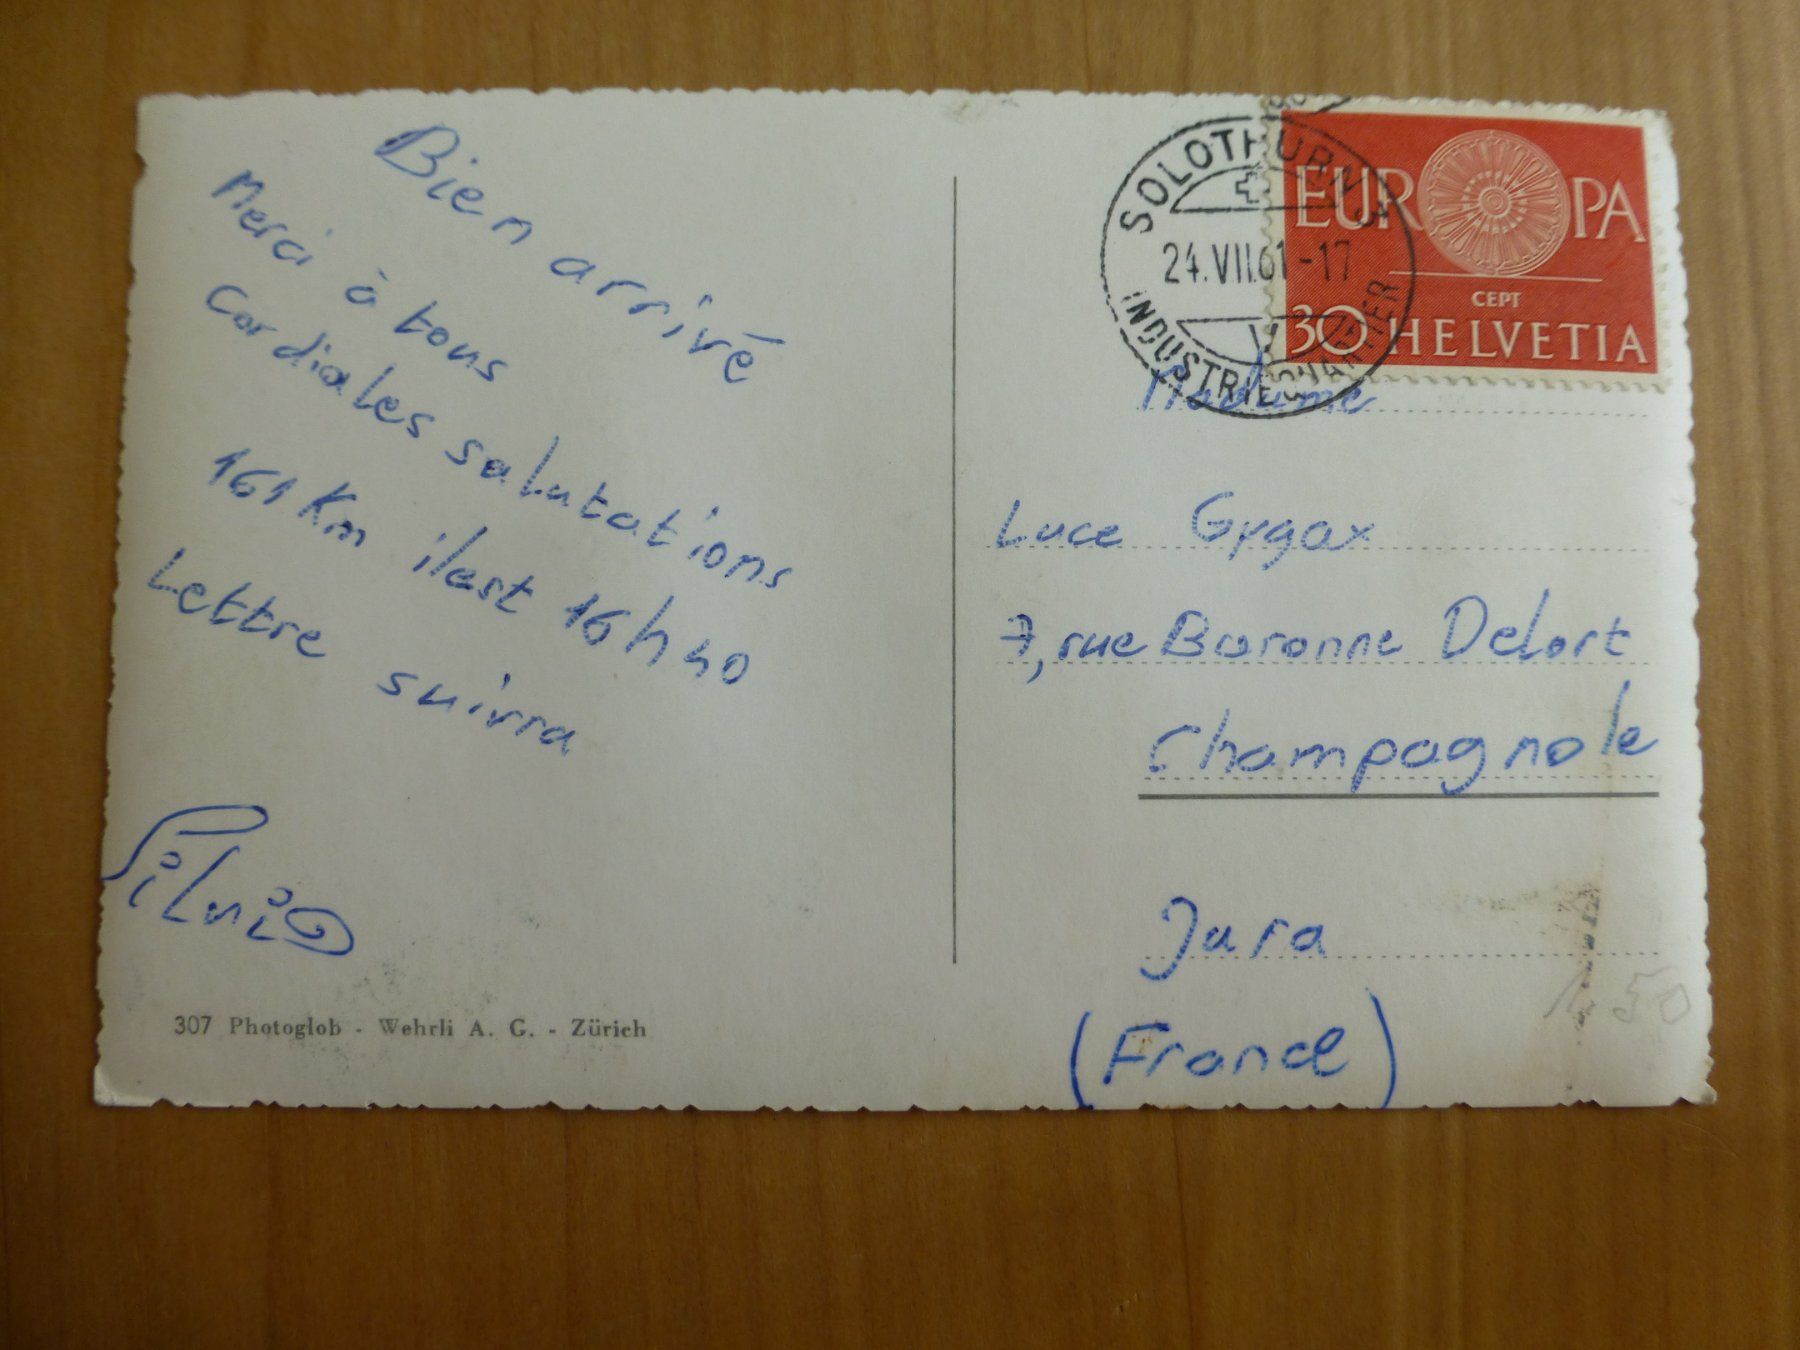 Bien arrivé
Merci à tous
Cordiales salutations
161 Km il est 16h40
Lettre suivra
Silvio
307 Photoglob - Wehrli A. G. - Zürich
SOLOTHURN
24.VII.61-17
INDUSTRIEQUARTIER
EUROPA
CEPT
30 HELVETIA
Madame
Luce Gygax
7, rue Baronne Delort
Champagnole
Jura
(France)